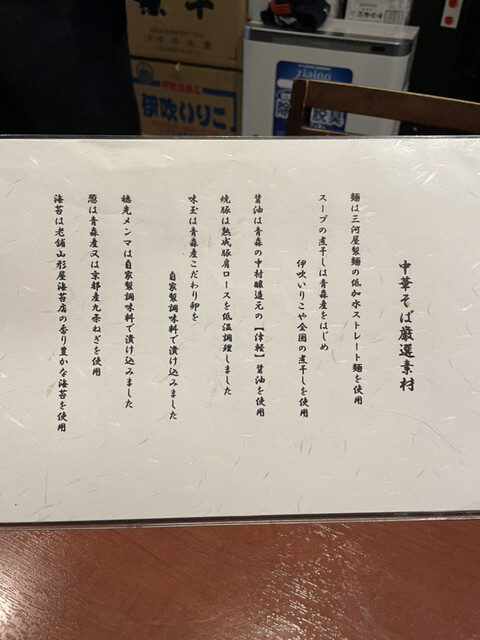 中華そば厳選素材
麺は三河屋製麺の低加水ストレート麺を使用
スープの煮干しは青森産をはじめ
伊吹いりこや全国の煮干しを使用
醤油は青森の中村醸造元の【津軽】醤油を使用
焼豚は熟成豚肩ロースを低温調理しました
味玉は青森産こだわり卵を
自家製調味料で漬け込みました
穂先メンマは自家製調味料で漬け込みました
葱は青森産又は京都産九条ねぎを使用
海苔は老舗山形屋海苔店の香り豊かな海苔を使用
ziaino
脱臭
伊吹いりこ